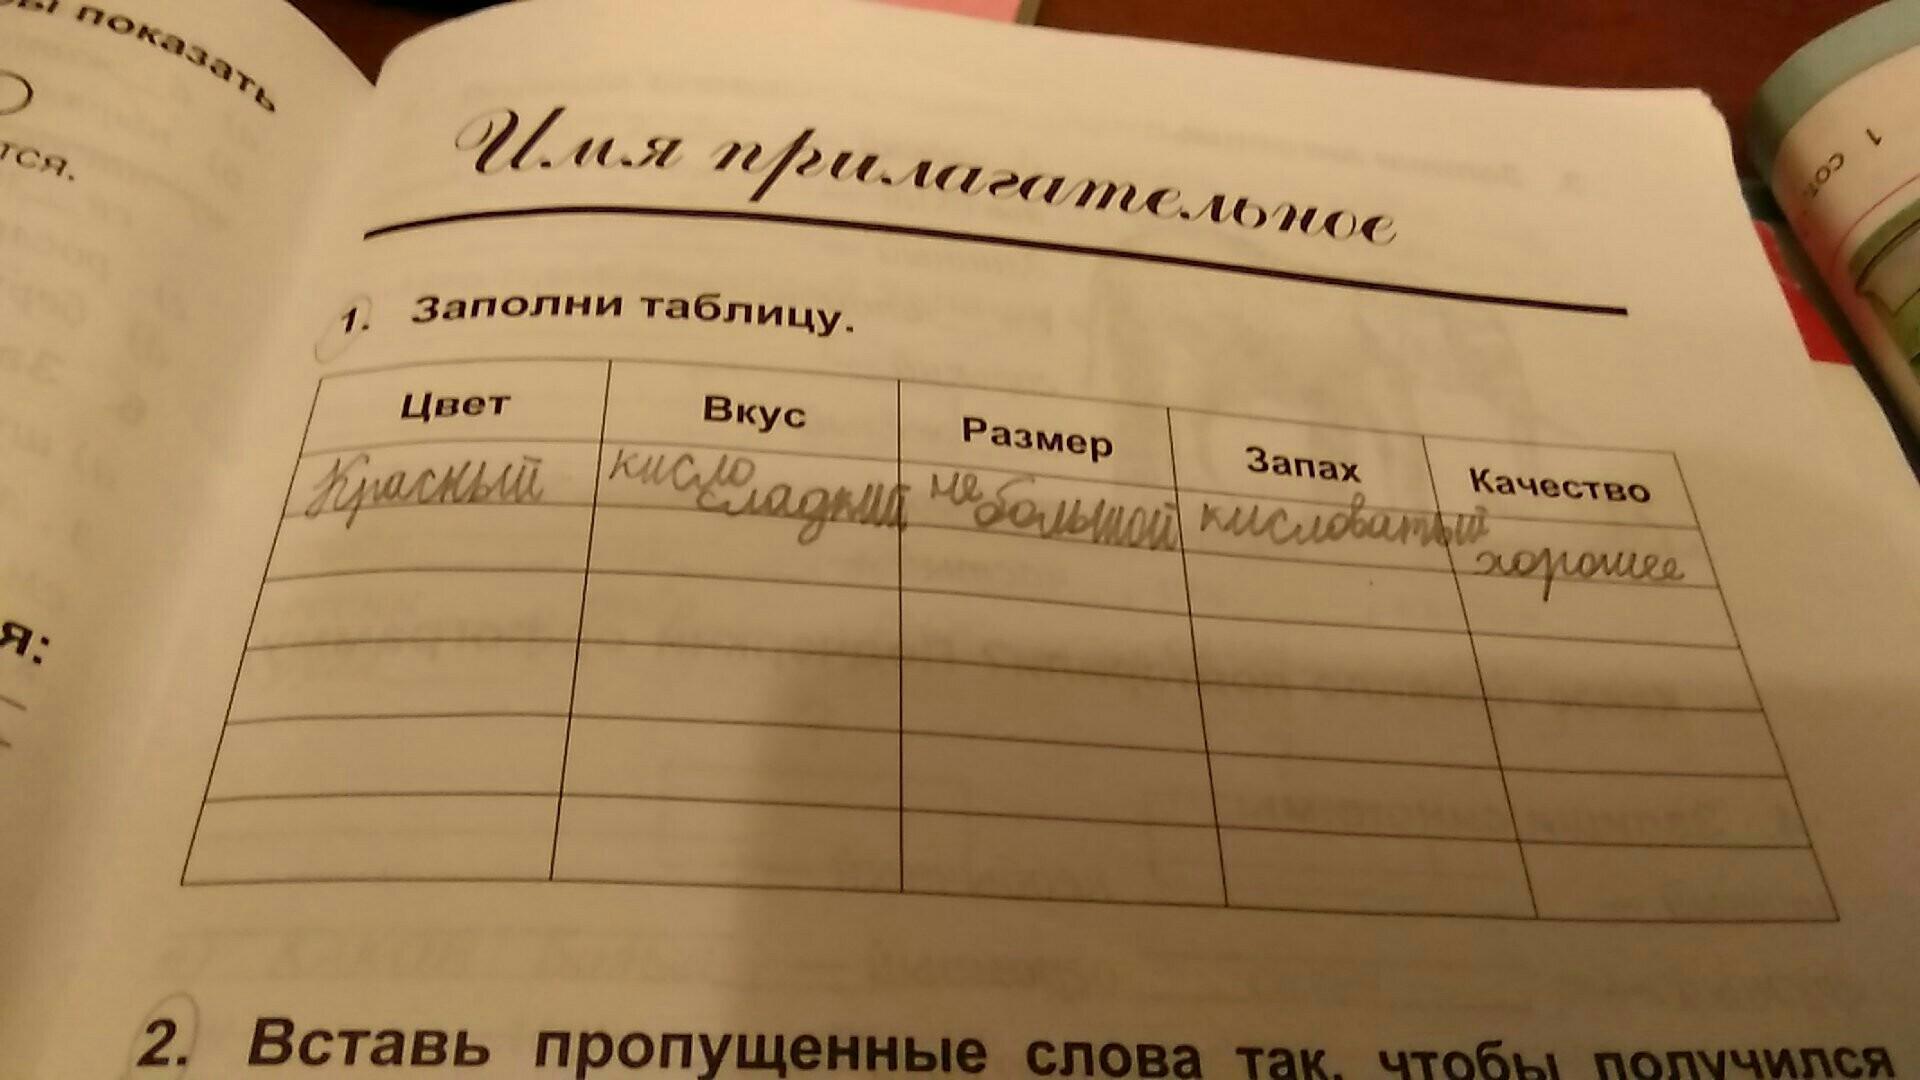 ы показать
тся.
я:
Имя прилагательное
1. Заполни таблицу.
Цвет Вкус Размер Запах Качество
Красный кисло сладкий не большой кисловатый хорошее
2. Вставь пропущенные слова так, чтобы получился
1 сот